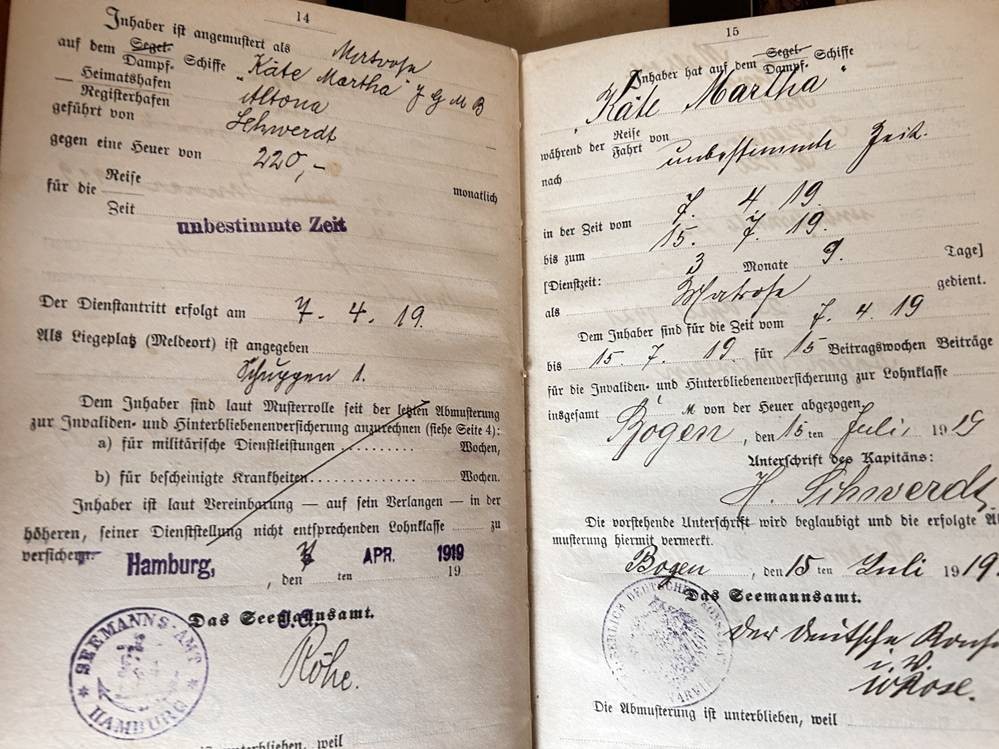 14
Inhaber ist angemustert als Matrose
auf dem Segel- Dampf- Schiffe "Käte Martha" J G M B
Heimatshafen
Registerhafen Altona
geführt von Schwerdt
gegen eine Heuer von 220,-
für die Reise monatlich
Zeit
unbestimmte Zeit
Der Dienstantritt erfolgt am 7. 4. 19.
Als Liegeplatz (Meldeort) ist angegeben
Schuppen 1.
Dem Inhaber sind laut Musterrolle seit der letzten Abmusterung
zur Invaliden- und Hinterbliebenenversicherung anzurechnen (siehe Seite 4):
a) für militärische Dienstleistungen .......... Wochen,
b) für bescheinigte Krankheiten............... Wochen.
Inhaber ist laut Vereinbarung — auf sein Verlangen — in der
höheren, seiner Dienststellung nicht entsprechenden Lohnklasse zu
versichern.
Hamburg, , den 7 ten APR. 1919 19
Das Seemannsamt.
Röhe.
SEEMANNS-AMT
HAMBURG
ist unterblieben, weil
15
Inhaber hat auf dem Segel- Dampf- Schiffe
"Käte Martha"
während der Reise Fahrt von unbestimmte Zeit.
nach
in der Zeit vom 7. 4. 19.
bis zum 15. 7. 19.
[Dienstzeit: 3 Monate 9. Tage]
als Matrose gedient.
Dem Inhaber sind für die Zeit vom 7. 4. 19
bis 15. 7. 19. für 15 Beitragswochen Beiträge
für die Invaliden- und Hinterbliebenenversicherung zur Lohnklasse
insgesamt M von der Heuer abgezogen.
Bogen, den 15 ten Juli, 19 19
Unterschrift des Kapitäns:
H. Schwerdt
Die vorstehende Unterschrift wird beglaubigt und die erfolgte
musterung hiermit vermerkt.
Bogen, den 15 ten Juli 19 19.
Das Seemannsamt.
Der Deutsche
i. V.
WRose.
DEUTSCHES KONSULAT
NARVIK
Die Abmusterung ist unterblieben, weil